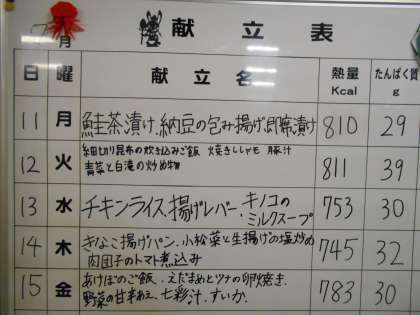 7月 献立表
日 曜 献立名 熱量 Kcal たんぱく質 g
11 月 鮭茶漬け、納豆の包み揚げ、即席漬け 810 29
12 火 細切り昆布の炊き込みご飯 焼きししゃも 豚汁
青菜と白滝の炒め物 811 39
13 水 チキンライス、揚げレバー、キノコの
ミルクスープ 753 30
14 木 きなこ揚げパン、小松菜と生揚げの塩炒め
肉団子のトマト煮込み 745 32
15 金 あけぼのご飯、えだまめとツナの卵焼き、
野菜の甘辛あえ、七彩汁、すいか 783 30